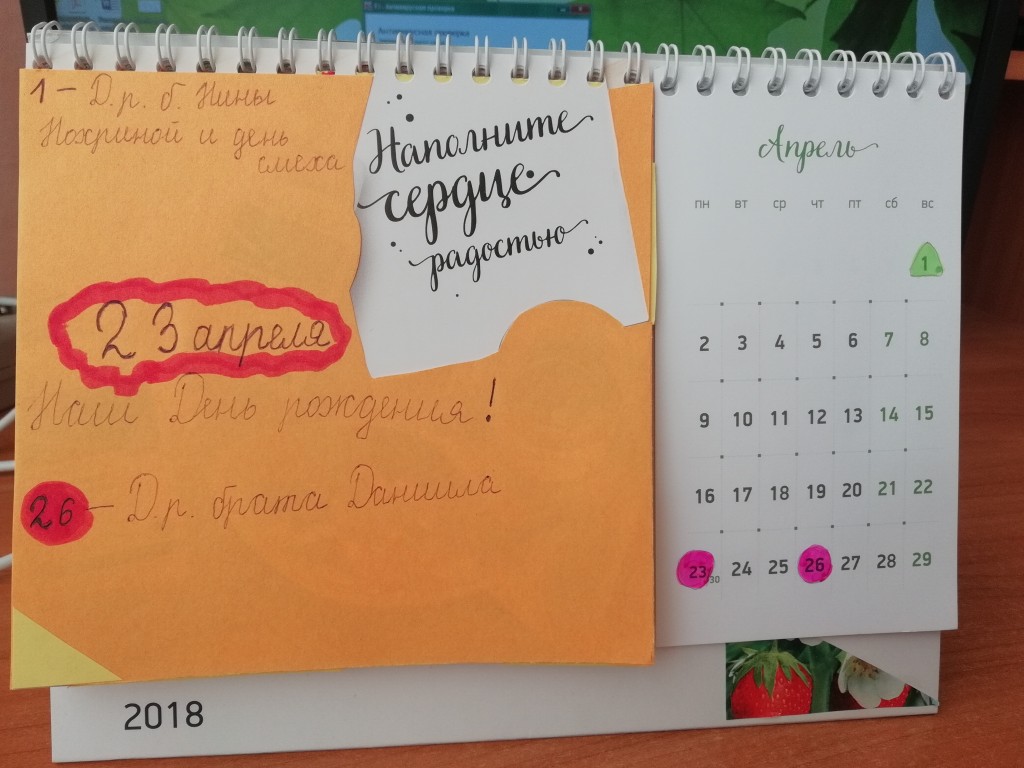 1 – Д.р. б. Нины
Нохриной и день
смеха
Наполните
сердце
радостью
23 апреля
Наш День рождения!
26 – Д.р. брата Даниила
Апрель
пн вт ср чт пт сб вс
1
2 3 4 5 6 7 8
9 10 11 12 13 14 15
16 17 18 19 20 21 22
23/30 24 25 26 27 28 29
2018